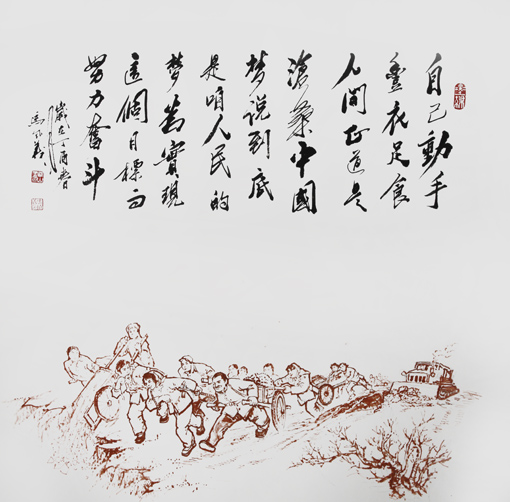 自己動手
豐衣足食
人間正道是
滄桑中國
梦说到底
是咱人民的
梦為實現
這個目標而
努力奮斗
歲在丁酉春